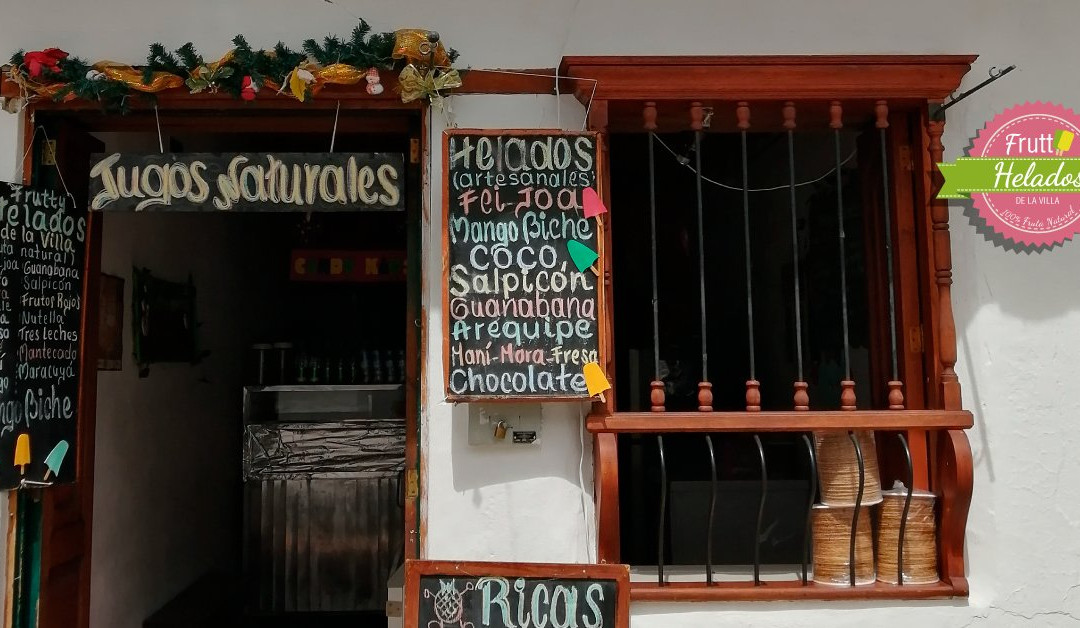 Jugos Naturales
Frutty
Helados
de la Villa
natural)
Guanabana
Salpicón
Frutos Rojos
Nutella
Tres Leches
Mantecado
Maracuyá
Mango Biche
Helados
(artesanales)
Fei-Joa
Mango Biche
Coco,
Salpicón
Guanabana
Arequipe
Maní-Mora-Fresa
Chocolate
Ricas
Frutt
Helados
DE LA VILLA
100% Fruta Natural